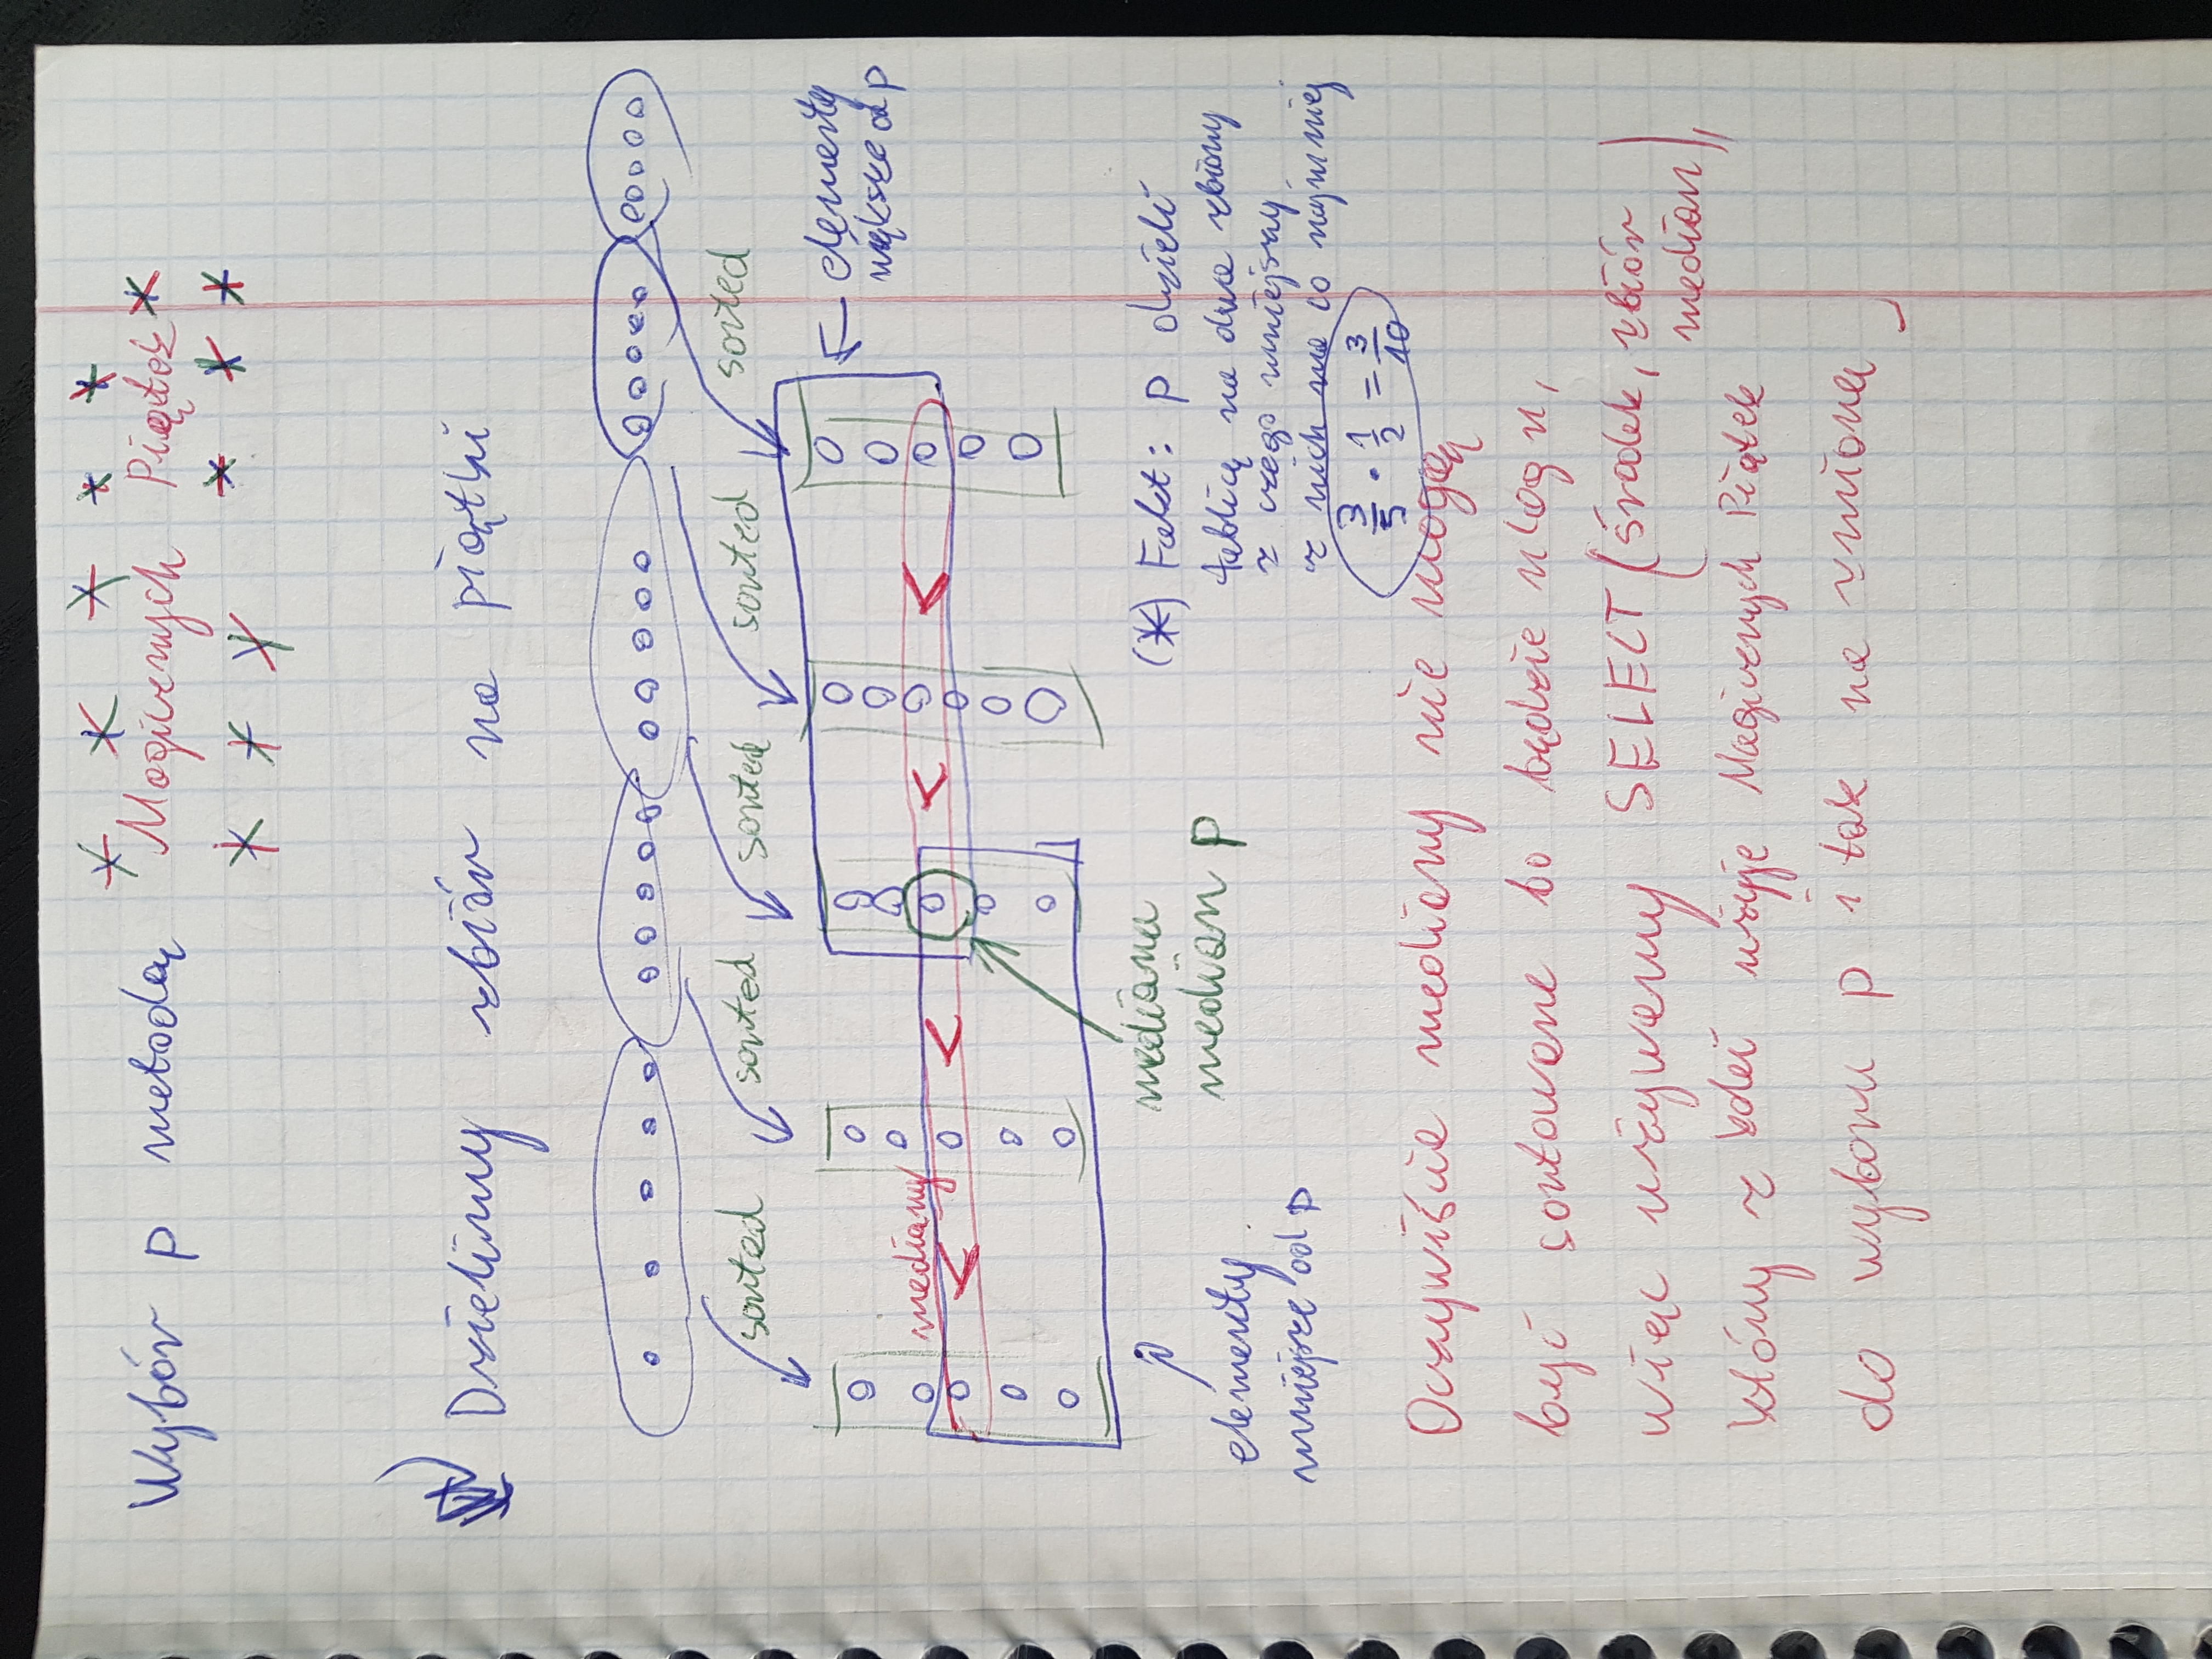 Wybór p metodą Magicznych Piątek
Dzielimy zbiór na piątki
sorted sorted sorted sorted sorted
elementy
większe od p
mediany < < < <
mediana
median p
elementy
mniejsze od p
(*) Fakt: p dzieli
tablicę na dwa zbiory
z czego mniejszy
z nich ma co najmniej
3/5 · 1/2 = 3/10
Oczywiście mediany nie mogą
być sortowane bo będzie nlogn,
więc używamy SELECT (środek, zbiór
median),
który z kolei użyje Magicznych Piątek
do wyboru p i tak na zmianę